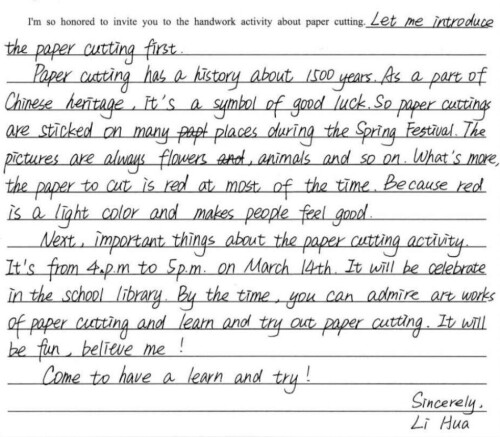 I'm so honored to invite you to the handwork activity about paper cutting. Let me introduce
the paper cutting first.
Paper cutting has a history about 1500 years. As a part of
Chinese heritage, it's a symbol of good luck. So paper cuttings
are sticked on many papt places during the Spring Festival. The
pictures are always flowers and, animals and so on. What's more,
the paper to cut is red at most of the time. Because red
is a light color and makes people feel good.
Next, important things about the paper cutting activity.
It's from 4.p.m to 5p.m. on March 14th. It will be celebrate
in the school library. By the time, you can admire art works
of paper cutting and learn and try out paper cutting. It will
be fun, believe me !
Come to have a learn and try !
Sincerely,
Li Hua